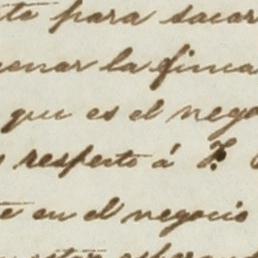 para sacar
la finca
que es el nego
respecto á F.
en el negocio